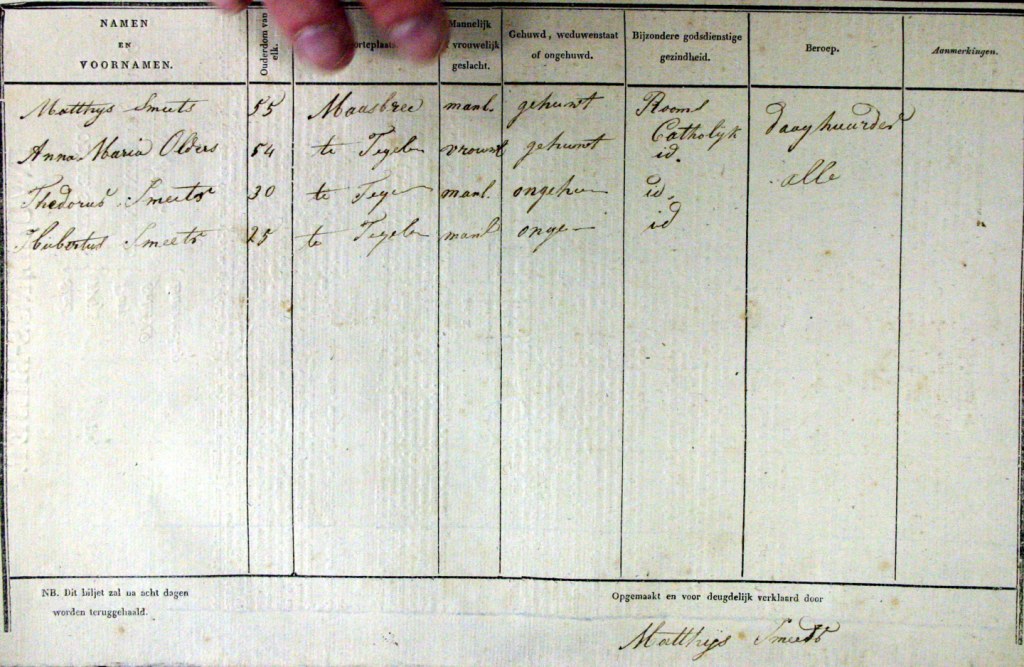 NAMEN
EN
VOORNAMEN.
Ouderdom van
elk.
orteplaats
Mannelijk
vrouwelijk
geslacht.
Gehuwd, weduwenstaat
of ongehuwd.
Bijzondere godsdienstige
gezindheid.
Beroep.
Aanmerkingen.
Matthys Smeets 55 Maasbree manl. gehuwt Rooms Catholijk daaghuurder
Anna Maria Olders 54 te Tegelen vrouwl gehuwt id.
Thedorus Smeets 30 te Tege manl. ongehu id. alle
Hubertus Smeets 25 te Tegelen manl onge id
NB. Dit biljet zal na acht dagen
worden teruggehaald.
Opgemaakt en voor deugdelijk verklaard door
Matthijs Smeets